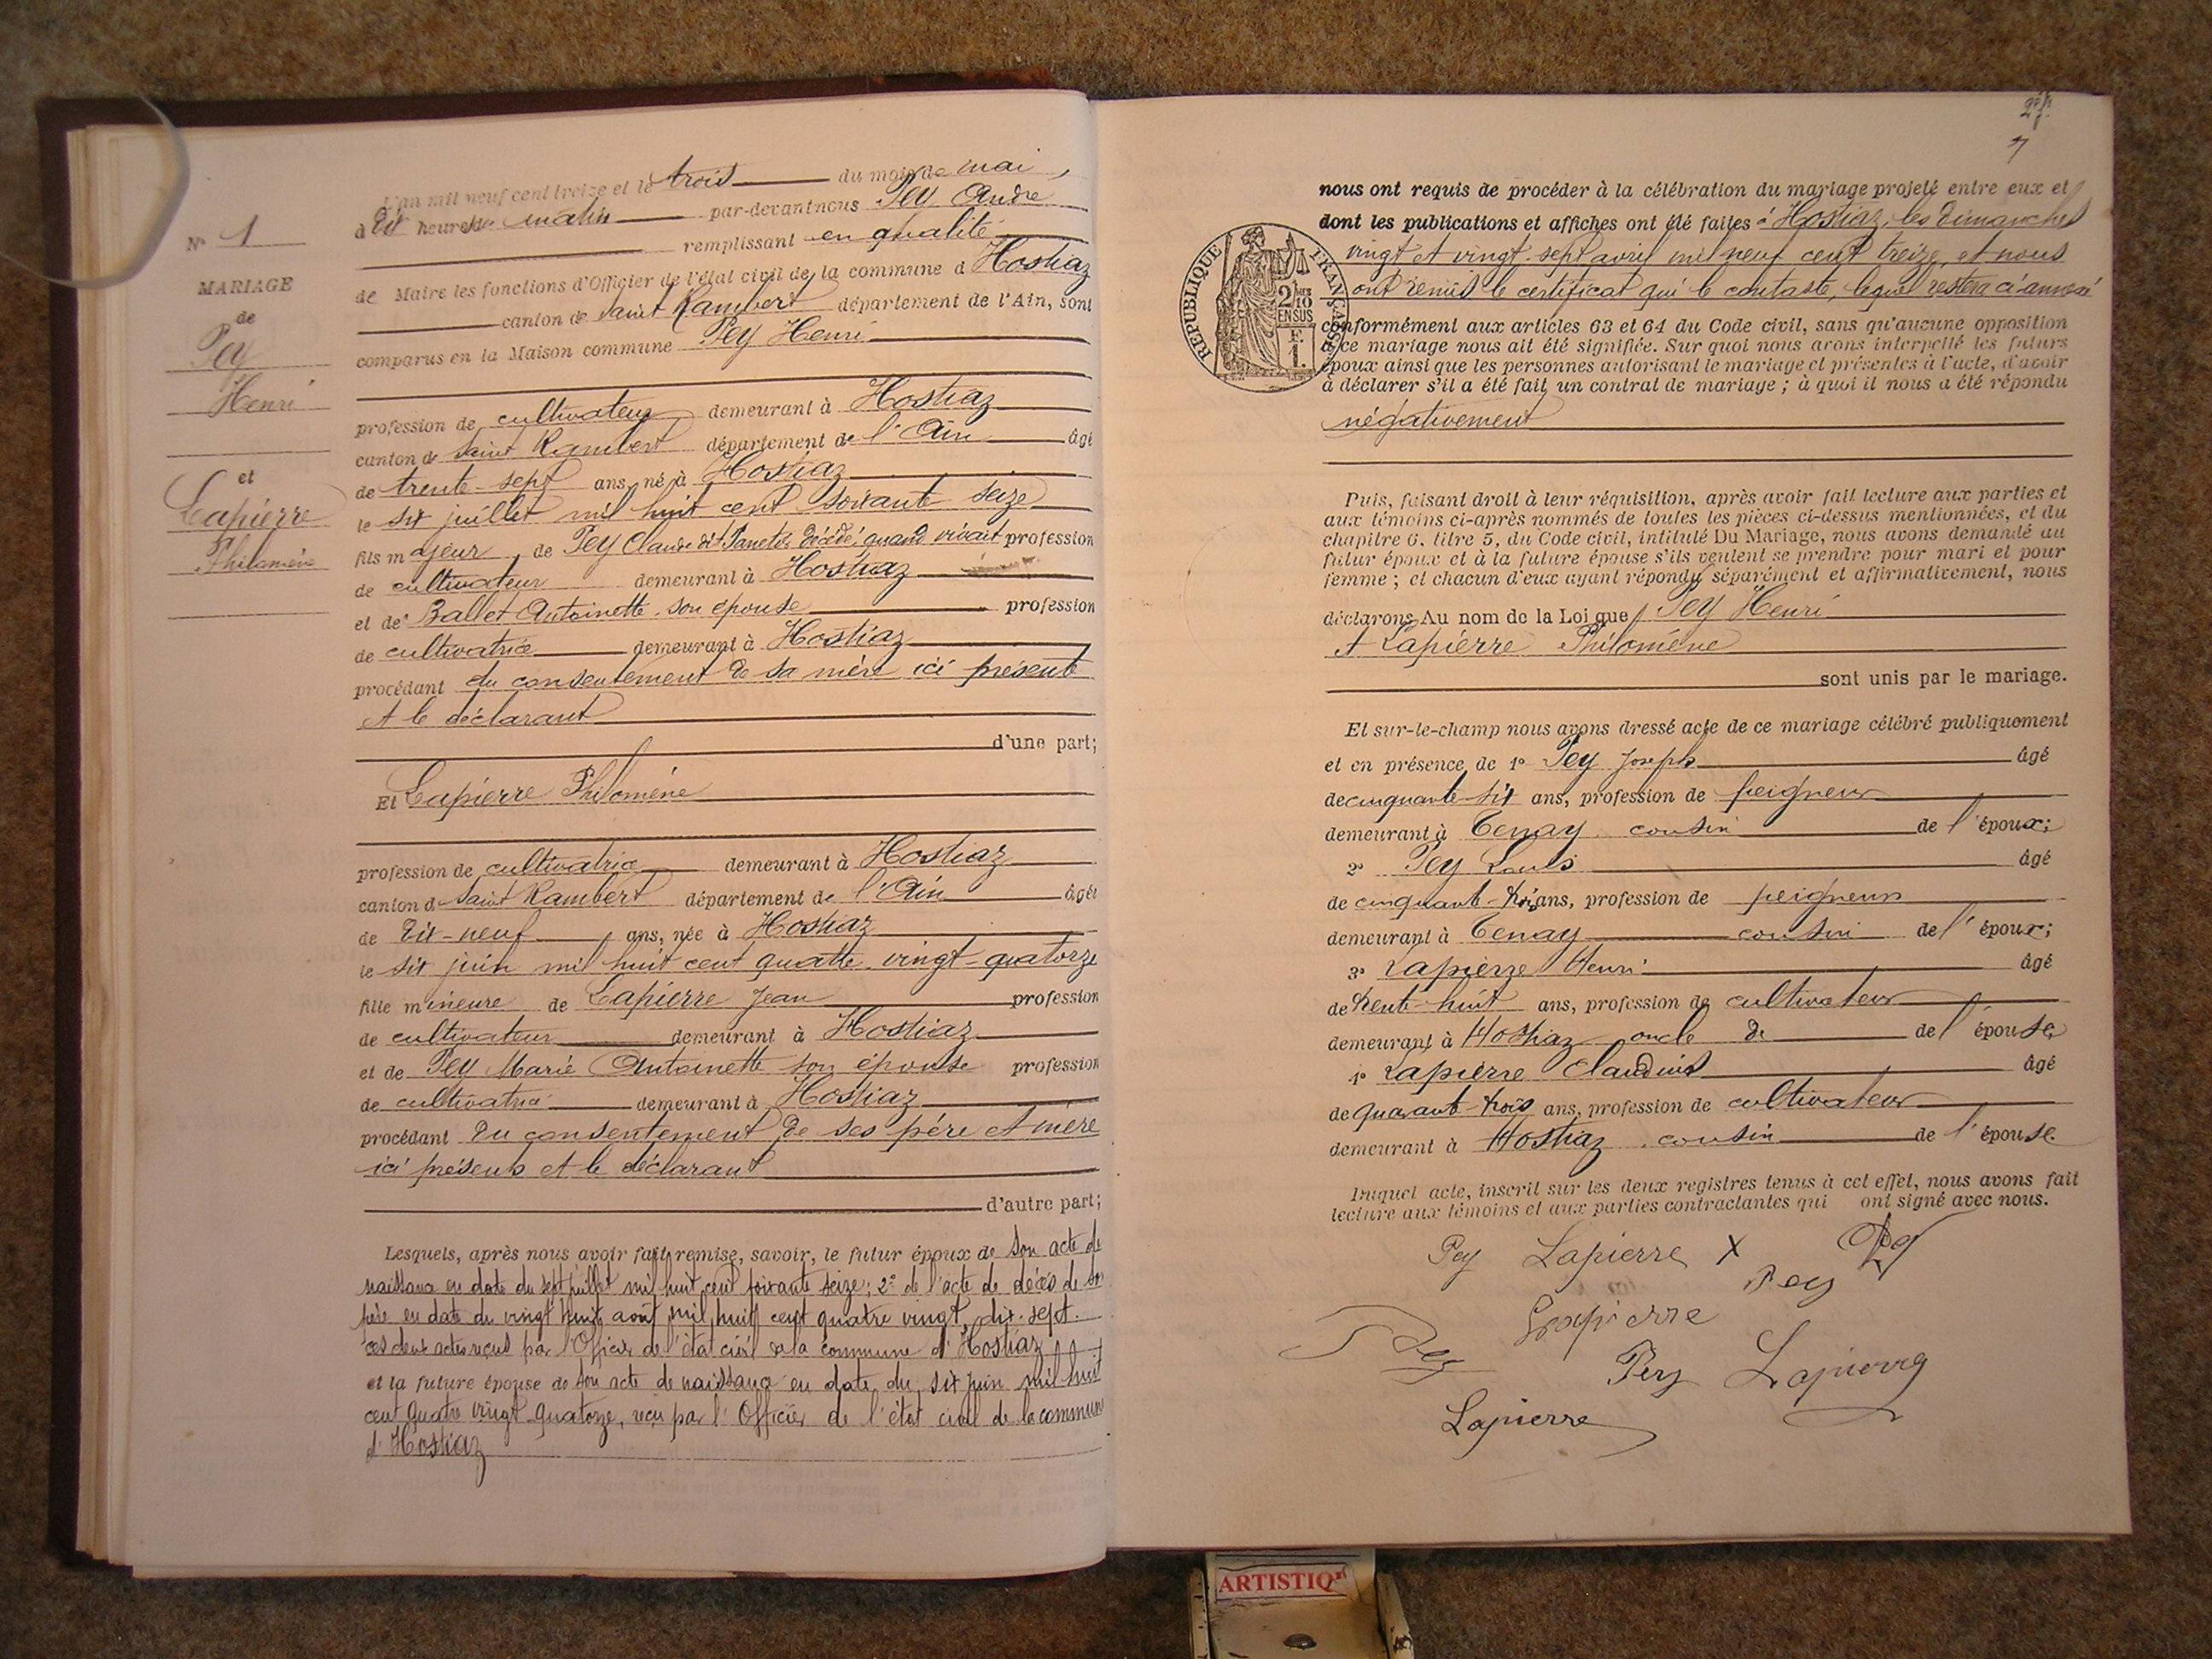 N° 1
MARIAGE
de
Pey
Henri
et
Lapierre
Philomène
L'an mil neuf cent treize et le trois du mois de mai,
à dix heures du matin par-devant nous Pey André
remplissant en qualité
de Maire les fonctions d'Officier de l'état civil de la commune d Hostiaz
canton de Saint Rambert département de l'Ain, sont
comparus en la Maison commune Pey Henri
profession de cultivateur demeurant à Hostiaz
canton de Saint Rambert département de l'Ain âgé
de trente-sept ans, né à Hostiaz
le six juillet mil huit cent soixante seize
fils majeur de Pey Claude dit Janeton décédé, quand vivait profession
de cultivateur demeurant à Hostiaz
et de Ballet Antoinette son épouse profession
de cultivatrice demeurant à Hostiaz
procédant du consentement de sa mère ici présente
et le déclarant
d'une part;
Et Lapierre Philomène
profession de cultivatrice demeurant à Hostiaz
canton d Saint Rambert département de l'Ain âgée
de dix-neuf ans, née à Hostiaz
le six juin mil huit cent quatre-vingt-quatorze
fille mineure de Lapierre Jean profession
de cultivateur demeurant à Hostiaz
et de Pey Marie Antoinette son épouse profession
de cultivatrice demeurant à Hostiaz
procédant du consentement de ses père et mère
ici présents et le déclarant
d'autre part;
Lesquels, après nous avoir fait remise, savoir, le futur époux de son acte de
naissance en date du sept juillet mil huit cent soixante seize; 2° de l'acte de décès de son
père en date du vingt huit août mil huit cent quatre vingt dix-sept.
ces deux actes reçus par l'Officier de l'état civil de la commune d'Hostiaz
et la future épouse de son acte de naissance en date du six juin mil huit
cent quatre vingt-quatorze, reçu par l'Officier de l'état civil de la commune
d'Hostiaz
7
nous ont requis de procéder à la célébration du mariage projeté entre eux et
dont les publications et affiches ont été faites à Hostiaz, les dimanches
vingt et vingt-sept avril mil neuf cent treize, et nous
ont remis le certificat qui le contaste, lequel restera ci-annexé
conformément aux articles 63 et 64 du Code civil, sans qu'aucune opposition
à ce mariage nous ait été signifiée. Sur quoi nous avons interpellé les futurs
époux ainsi que les personnes autorisant le mariage et présentes à l'acte, d'avoir
à déclarer s'il a été fait un contrat de mariage; à quoi il nous a été répondu
négativement
REPUBLIQUE FRANÇAISE
2/10
EN SUS
F.
1.
Puis, faisant droit à leur réquisition, après avoir fait lecture aux parties et
aux témoins ci-après nommés de toutes les pièces ci-dessus mentionnées, et du
chapitre 6, titre 5, du Code civil, intitulé Du Mariage, nous avons demandé au
futur époux et à la future épouse s'ils veulent se prendre pour mari et pour
femme; et chacun d'eux ayant répondu séparément et affirmativement, nous
déclarons Au nom de la Loi que Pey Henri
et Lapierre Philomène
sont unis par le mariage.
Et sur-le-champ nous avons dressé acte de ce mariage célébré publiquement
et en présence de 1° Pey Joseph âgé
de cinquante-six ans, profession de peigneur
demeurant à Tenay cousin de l'époux;
2° Pey Louis âgé
de cinquante-trois ans, profession de peigneur
demeurant à Tenay cousin de l'époux;
3° Lapierre Henri âgé
de trente-huit ans, profession de cultivateur
demeurant à Hostiaz oncle de de l'épouse
4° Lapierre Claudius âgé
de quarante-trois ans, profession de cultivateur
demeurant à Hostiaz cousin de l'épouse.
Duquel acte, inscrit sur les deux registres tenus à cet effet, nous avons fait
lecture aux témoins et aux parties contractantes qui ont signé avec nous.
Pey Lapierre X Pey
Pey
Lapierre
Pey
Pey Lapierre
Lapierre
ARTISTIQ